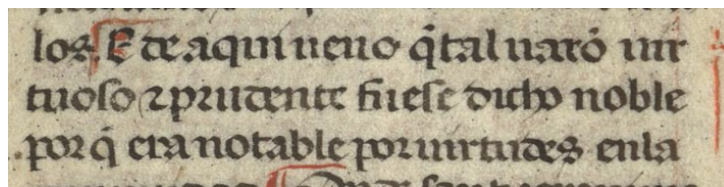 los. E de aqui ueno q̃ tal uarõ uir
tuoso ⁊ prudente fuese dicho noble
por q̃ era notable por uirtudes en la